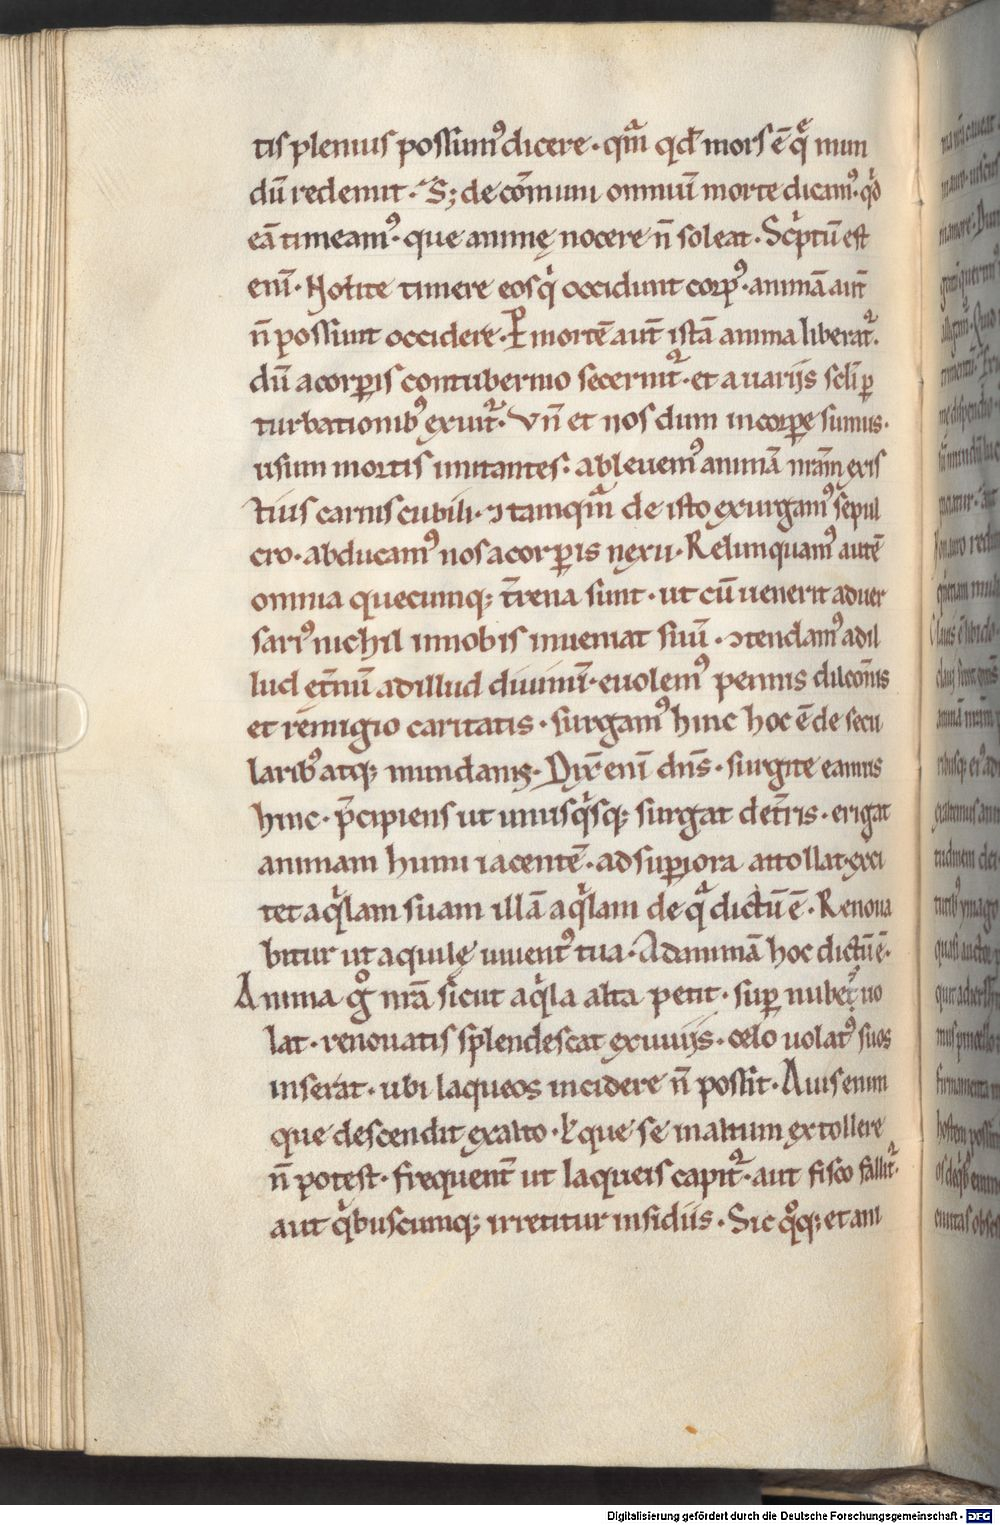 tis plenius possumꝰ dicere · qm̃ qd̃ mors ẽ q̃ mun
dũ redemit · S; de cõmuni omniũ morte dicamꝰ · qͥd
eã timeamꝰ · que animę nocere ñ soleat · Scͥptũ est
eni᷒ · Nolite timere eos qͥ occidunt corpꝰ · animã aut̃
ñ possunt occidere · P mortẽ aut̃ istã anima liberat᷒ ·
dũ a corꝑis contubernio secernit᷒ · et a uarijs scl̃i ꝑ
turbationibꝰ exuit᷒ · Vñ et nos dum in corꝑe sumus ·
usum mortis imitantes: ableuemꝰ animã nr̃am ex is
tius carnis cubili · ⁊ tamqͣm de isto exurgamꝰ sepul
cro · abducamꝰ nos a corꝑis nexu · Relinquamꝰ autẽ
omnia quecumq; tr̃rena sunt · ut cũ uenerit aduer
sariꝰ nichil in nobis inueniat suũ · ⁊tendamꝰ ad il
lud et̃nũ ad illud diuinũ · euolemꝰ pennis dilcõnis
et remigio caritatis · surgamꝰ hinc hoc ẽ de secu
laribꝰ atq; mundanis · Dix̃ enĩ dñs · surgite eamus
hinc · p̃cipiens ut unusqͥsq; surgat de tr̃ris · erigat
animam humi iacentẽ · ad suꝑiora attollat · exci
tet aqͥlam suam illã aqͥlam de qͣ dictũ ẽ · Renoua
bitur ut aquilę iuuentꝰ tua · Ad animã hoc dictũ ẽ ·
Anima gͦ nr̃a sicut aqͥla alta petit · suꝑ nubes uo
lat · renouatis splendescat exuuijs · celo uolatꝰ suos
inserat · ubi laqueos incidere ñ possit · Auis enim
que descendit ex alto · ł que se in altum extollere
ñ potest · frequent̃ ut laqueis capit᷒ · aut fisco fallit᷒ ·
aut qͥbuscumq; irretitur insidiis · Sic qͦq; et ani
Digitalisierung gefördert durch die Deutsche Forschungsgemeinschaft - DFG